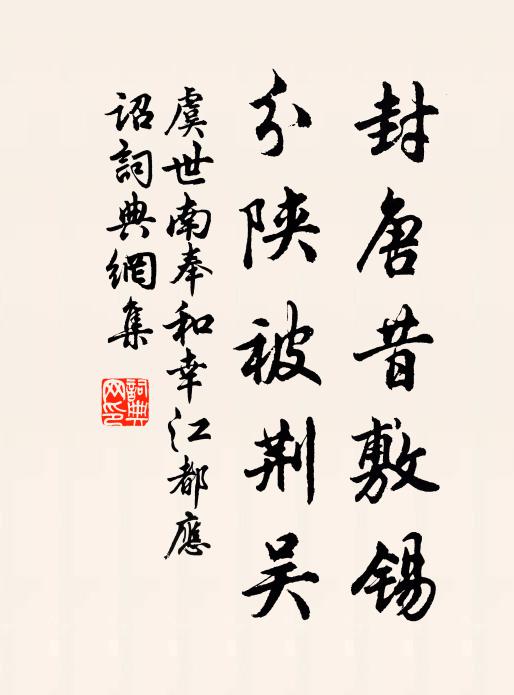 封唐昔敷锡
分陕被荆吴
虞世南奉和幸江都應
詔詞典網集
詞典网印